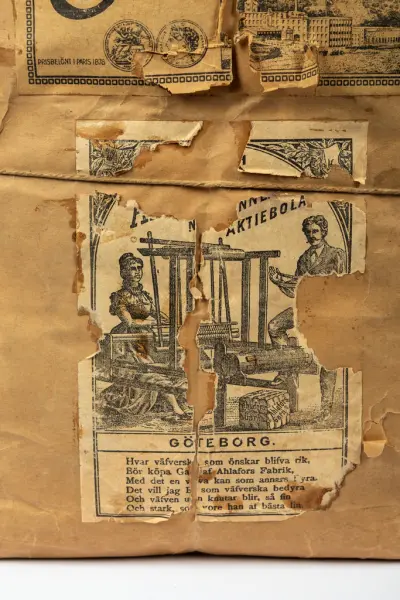 PRISBELÖNT I PARIS 1878
AKTIEBOLA
GÖTEBORG.
Hvar väfversk som önskar blifva rik,
Bör köpa Ga af Ahlafors Fabrik,
Med det en v va kan som annars fyra.
Det vill jag som väfverska bedyra
Och väfven n kantar blir, så fin
Och stark, so vore han af bästa lin